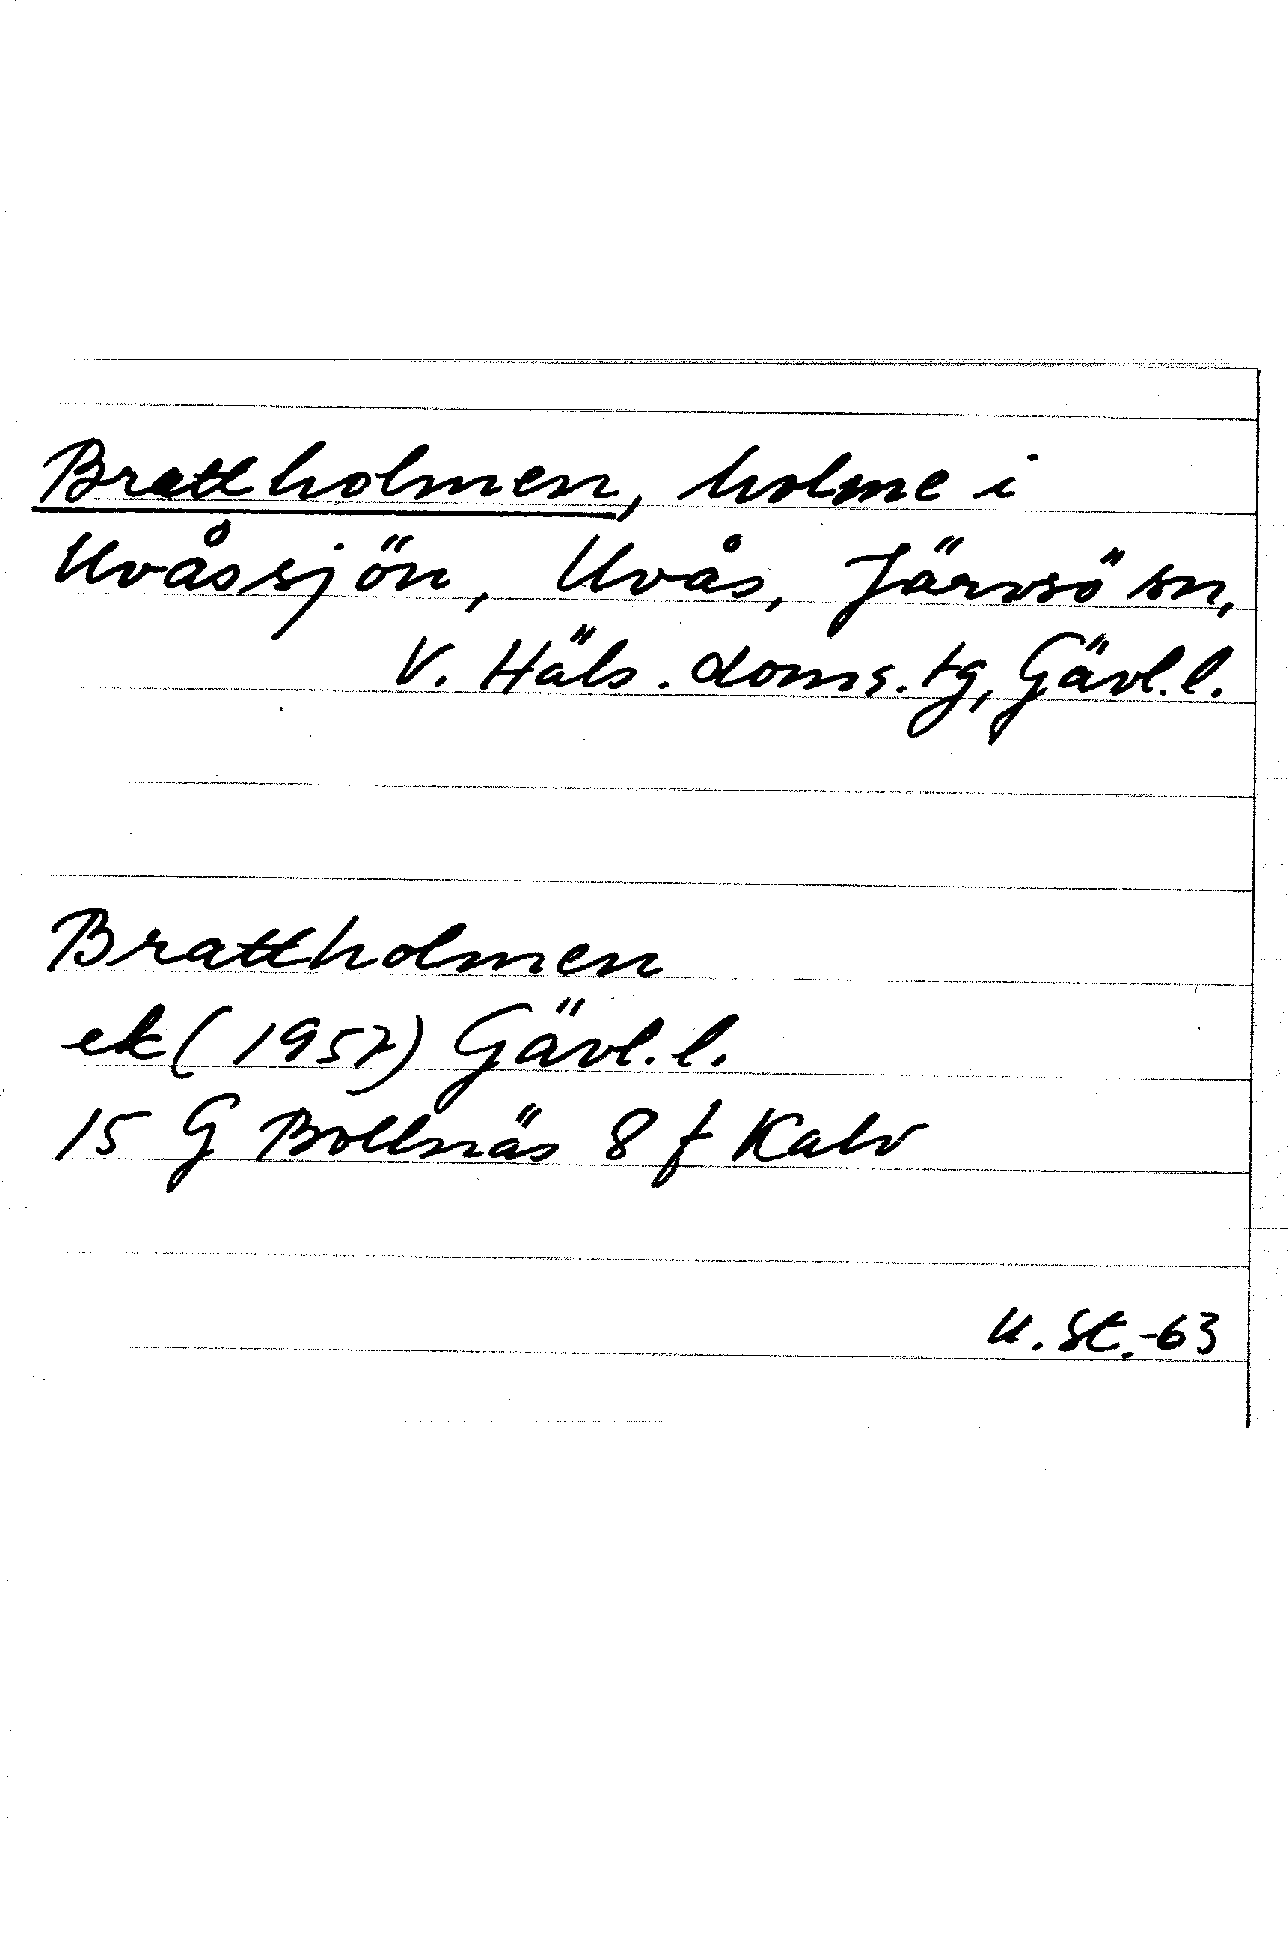 Brattholmen, holme i
Uvåssjön, Uvås, Järvsö sn,
V. Häls. doms. tg, Gävl. l.
Brattholmen
ek (1957) Gävl. l.
15 G Bollnäs 8 f Kalv
U. St. -63